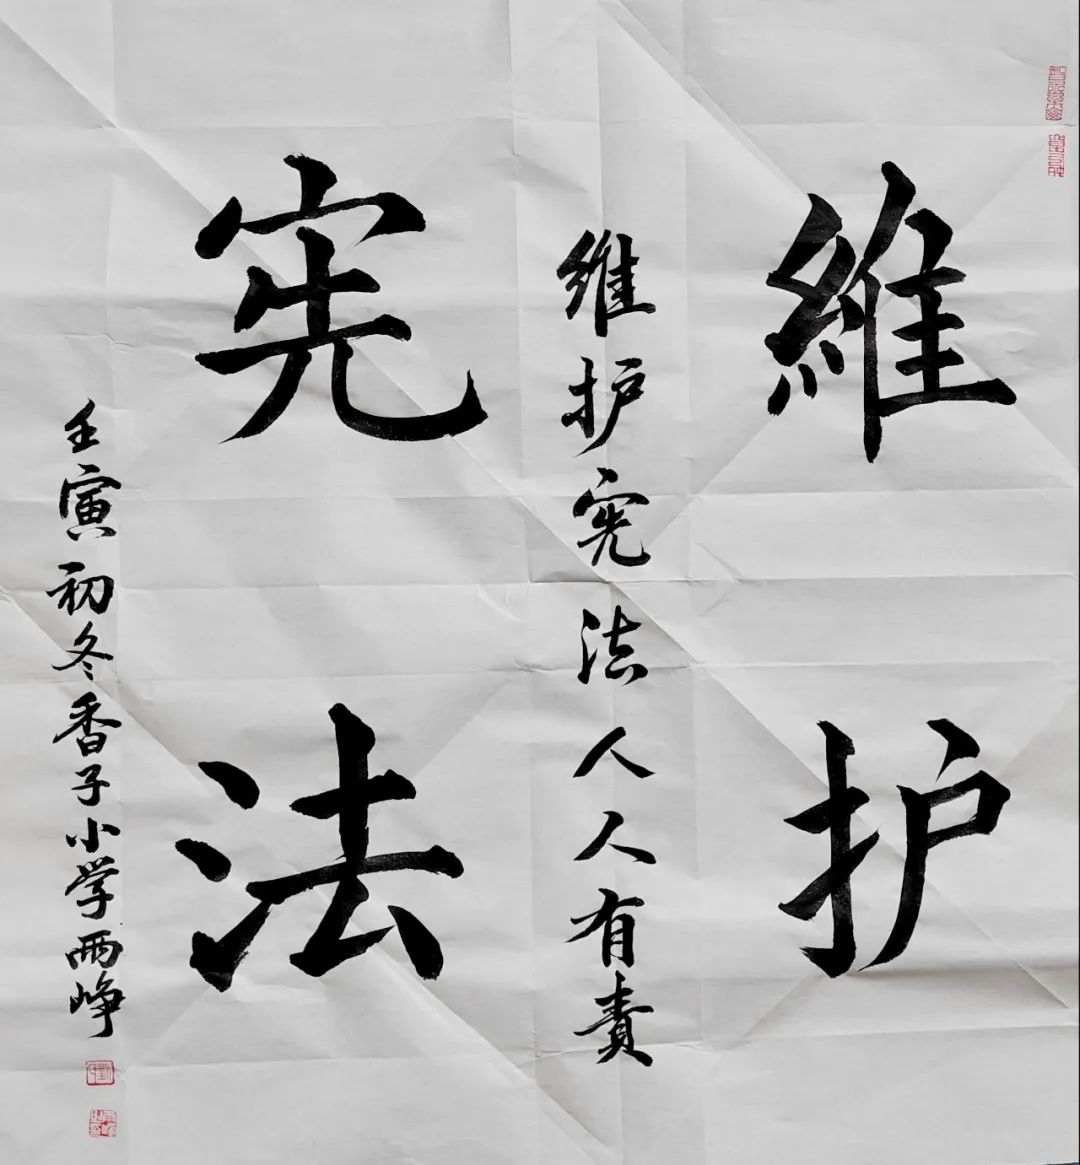 維护
宪法
维护宪法人人有责
壬寅初冬香子小学雨峥